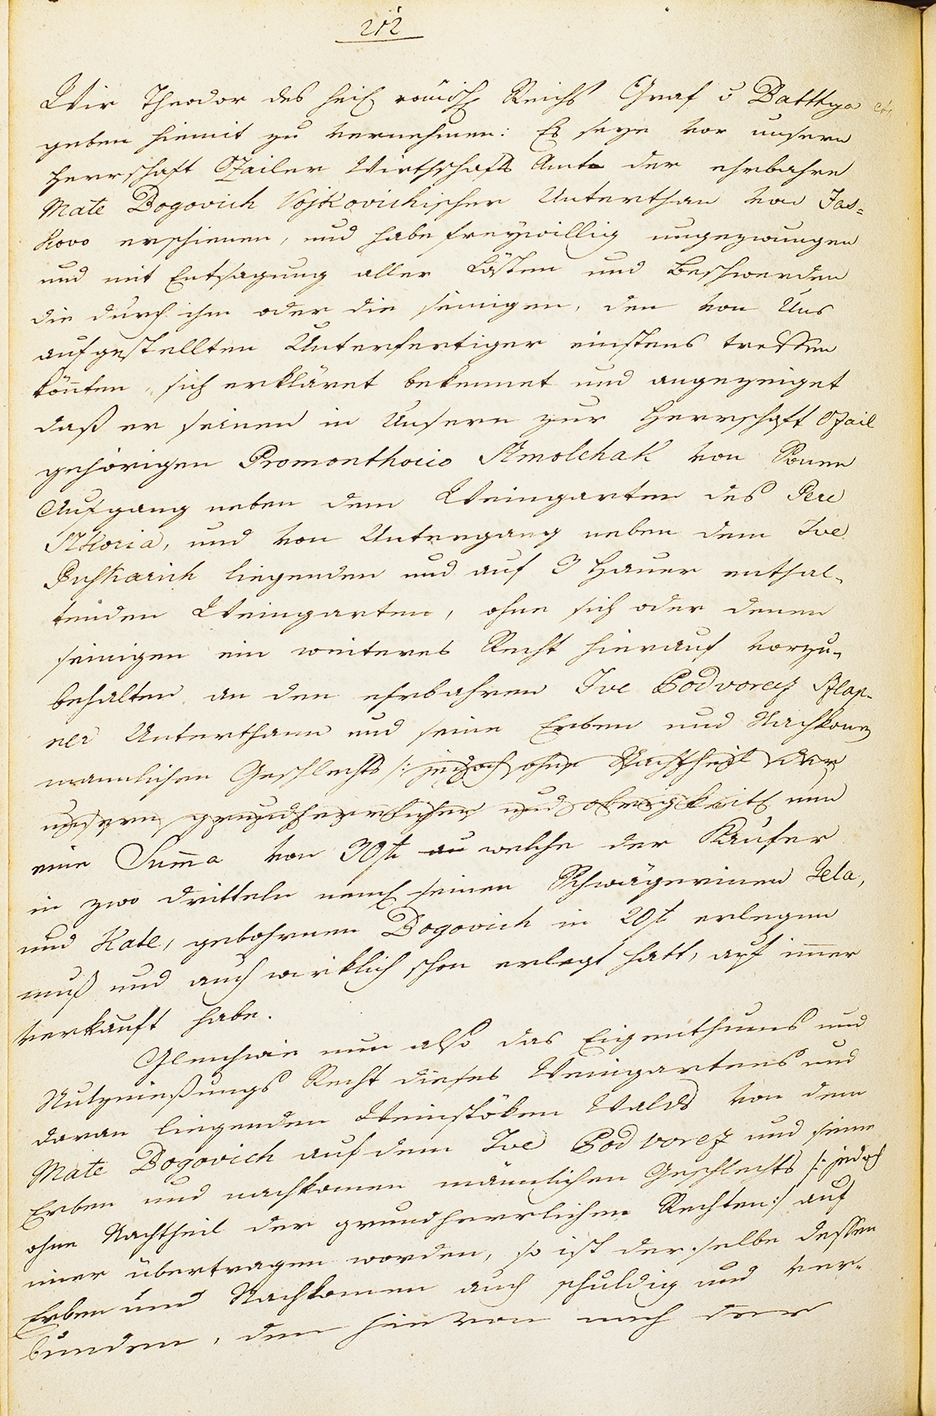 212
Wir Theodor des heil römisch Reichs Graf v Batthya etc
geben hiemit zu vernehmen: Es seye vor unsern
Herrschaft Ozailer Wirthschafts Amte der ehrbahre
Mate Dogovich Vojkovichischer Unterthan von Jas-
kovo erschienen, und habe freywillig ungezwungen
und mit Entsagung aller Lästen und Beschwerden
die durch ihn oder die seinigen, den von Uns
aufgestellten Unterfertiger einstens treffen
könnten, sich erkläret bekennet und angezeiget
daß er seinen in Unsern zur Herrschaft Ozail
gehörigen Promonthorio Smolchak von Sonnen
Aufgang neben dem Weingarten des Pere
Skoria, und von Untergang neben dem Ive
Puskarich liegenden und auf 3 Hauer enthal-
tenden Weingarten, ohne sich oder denen
seinigen ein weiteres Recht hierauf vorzu-
behalten an den ehrbahren Ive Podvorecz
Unterthann und seine Erben und Nachkomen
mannlichen Geschlechts /: jedoch ohne Nachtheil der
unsern grundherrlichen und obrigkeitl um
eine Summa von 30 fl welche der Käufer
in zwo dritteln nemh seinen Schwägerinen Jela,
und Kate, gebohrnen Dogovich in 20 fl erlegen
muß und auch wirklich schon erlegt hatt, auf immer
verkauft habe.
Gleichwie nun also das Eigenthums und
Nutznießungs Recht dieses Weingartens und
daran liegenden Weinstöken Walds von dem
Mate Dogovich auf dem Ive Podvorecz und seine
Erben und nachkomen männlichen Geschlechts /: jedoch
ohne Nachtheil der grundherrlichen Rechten :/ auf
imer übertragen worden, so ist derselbe dessen
Erben und Nachkomen auch schuldig und ver-
bunden, den hievon nach der